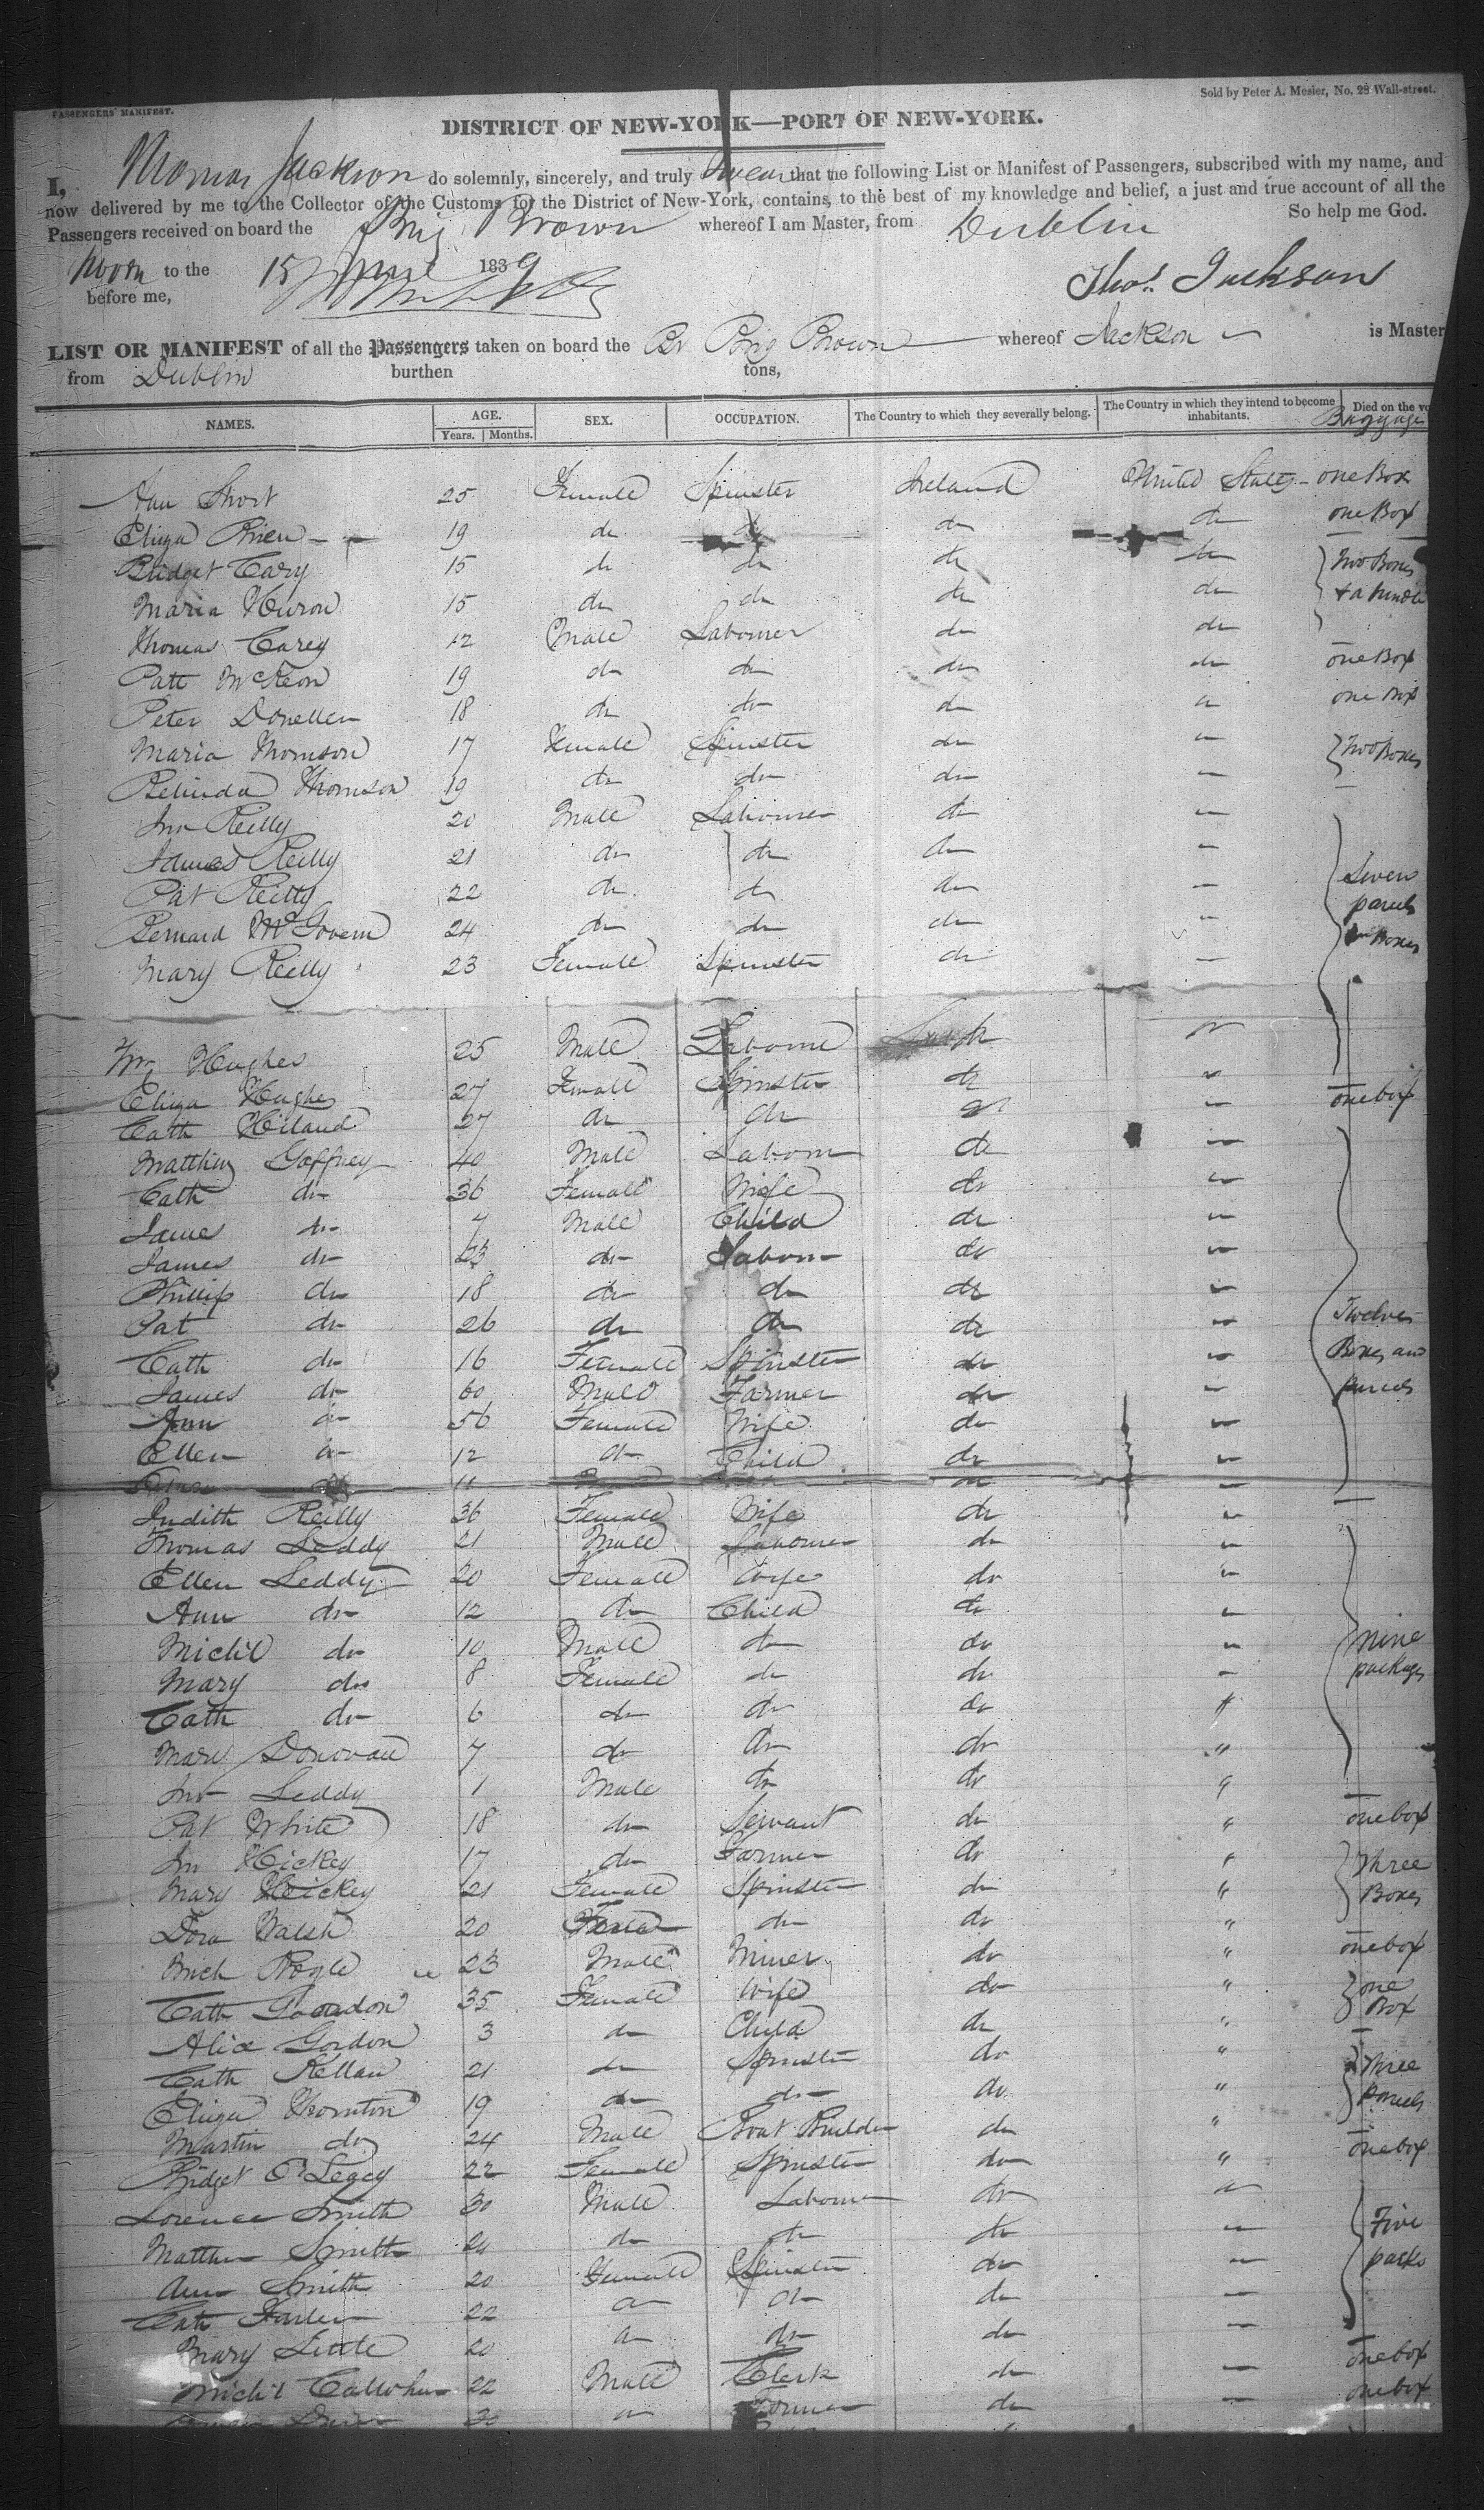 PASSENGERS' MANIFEST.
Sold by Peter A. Mesier, No. 28 Wall-street.
DISTRICT OF NEW-YORK—PORT OF NEW-YORK.
I, Thomas Jackson do solemnly, sincerely, and truly Swear that the following List or Manifest of Passengers, subscribed with my name, and
now delivered by me to the Collector of the Customs for the District of New-York, contains, to the best of my knowledge and belief, a just and true account of all the
Passengers received on board the Brig Brown whereof I am Master, from Dublin So help me God.
Sworn to the 15 June 1839
before me,
Thos. Jackson
LIST OR MANIFEST of all the Passengers taken on board the Br Brig Brown whereof Jackson is Master
from Dublin burthen tons,
NAMES. AGE. Years. Months. SEX. OCCUPATION. The Country to which they severally belong. The Country in which they intend to become inhabitants. Died on the vo
Baggage
Ann Short 25 Female Spinster Ireland United States one Box
Eliza Brien 19 do do do do one Box
Bridget Cary 15 do do do do Two Boxes
Maria Huron 15 do do do do & a bundle
Thomas Carey 12 Male Labourer do do
Patt McKeon 19 do do do do one Box
Peter Donellen 18 do do do do one Box
Maria Thomson 17 Female Spinster do " Two Boxes
Belinda Thomson 19 do do do "
Jno Reilly 20 Male Labourer do "
James Reilly 21 do do do "
Pat Reilly 22 do do do " Seven
Bernard McGovern 24 do do do " parcels
Mary Reilly 23 Female Spinster do " Boxes
Hughes 25 Male Labourer do "
Eliza Hughes 27 Female Spinster do " one box
Cath Hiland 27 do do do "
Matthew Gaffney 40 Male Labour do "
Cath do 36 Female Wife do "
James do 7 Male Child do "
James do 23 do Labour do "
Phillip do 18 do do do "
Pat do 26 do do do " Twelve
Cath do 16 Female Spinster do " Boxes and
James do 60 Male Farmer do " parcels
Ann do 56 Female Wife do "
Ellen do 12 do Child do "
11 do "
Judith Reilly 36 Female Wife do "
Thomas Leddy 21 Male Labourer do "
Ellen Leddy 20 Female Wife do "
Ann do 12 do Child do "
Michl do 10 Male do do " Nine
Mary do 8 Female do do " packages
Cath do 6 do do do "
Mary Donovan 7 do do do "
Jno Leddy 1 Male do do "
Pat White 18 do Servant do " one box
Jno Hickey 17 do Farmer do " Three
Mary Hickey 21 Female Spinster do " Boxes
Dora Walsh 20 Female do do "
Mich Bogle 23 Male Miner do " one box
Cath Goordon 35 Female Wife do " one
Alice Gordon 3 do Child do " Box
Cath Kellan 21 do Spinster do " Three
Eliza Thornton 19 do do do " parcels
Martin do 24 Male Boat Builder do "
Bridget 22 Female Spinster do " one box
Lorence Smith 30 Male Labourer do "
Matthew Smith 24 do do do " Five
Ann Smith 20 Female Spinster do " packs
Cath 22 do do do "
Mary Little 20 do do do " one box
Michl Callohan 22 Male Clerk do " one box
30 do Farmer do "